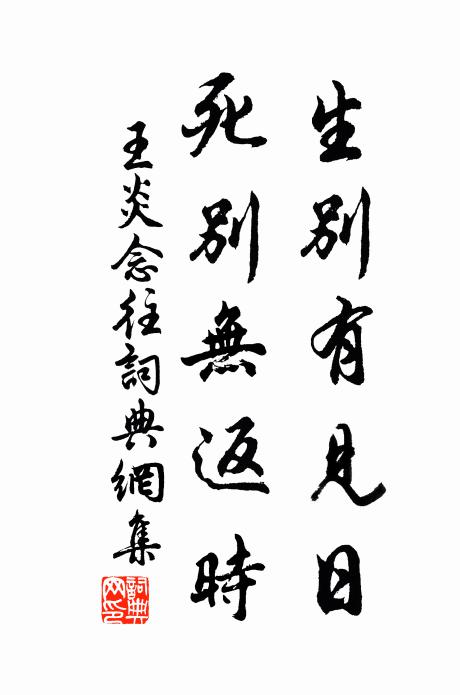 生別有見日
死別無返時
王炎念往詞典網集
詞典网印